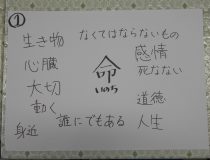 ①
生き物
なくてはならないもの
心臓
感情
命
いのち
死なない
大切
動く
道徳
身近
誰にでもある
人生